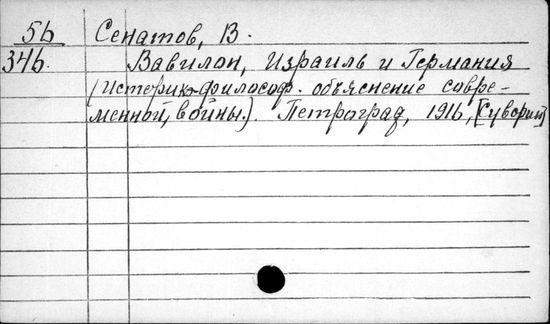 56 Сенатов, В.
346. Вавилон, Израиль и Германия
(Историко-философ. объяснение совре-
менной войны.). Петроград, 1916, [Суворин]